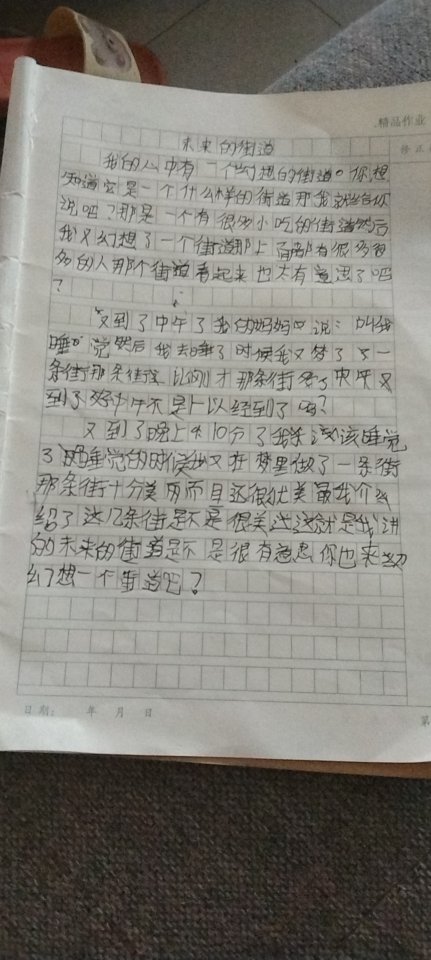 精品作业
修正
未来的街道
我的心中有一个幻想的街道。你想
知道它是一个什么样的街道那我就给你
说吧？那是一个有很多小吃的街道然后
我又幻想了一个街道那上面都有很多很
多的人那个街道看起来也太有意思了吧
？
又到了中午了我的妈妈又说：叫我
睡觉然后我去睡了时候我又梦了了一
条街那条街 比刚才那条街 又
到了 中午不是 以经到了吗？
又到了晚上 10分了我 该睡觉
了 睡觉的时候我又在梦里做了一条街
那条街十分美 而且还很壮美 我介
绍了这几条街是不是很美 这就是我讲
的未来的街道是不是很有意思你也来
幻想一个街道吧？
日期： 年 月 日
第